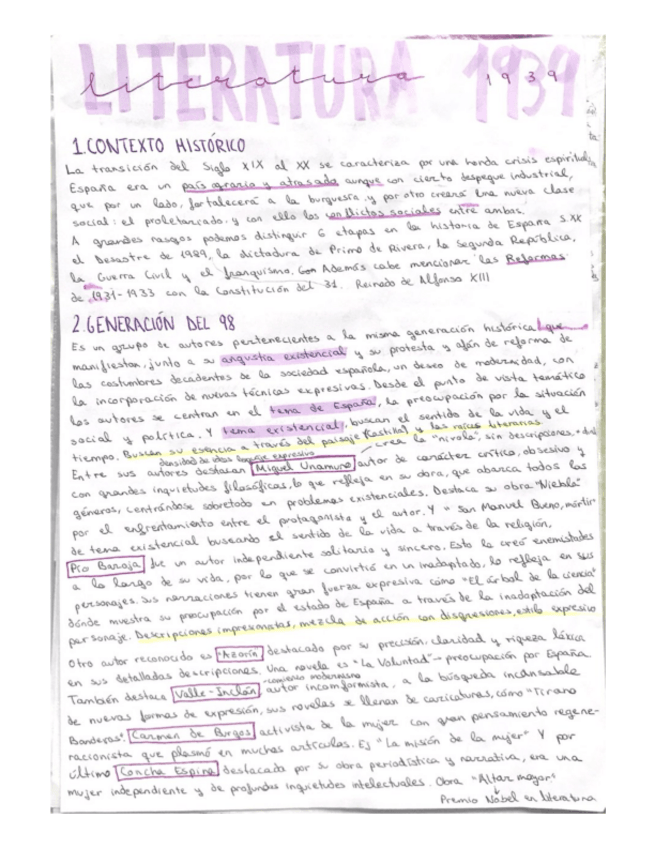 LITERATURA 1939
literatura 1939
1. CONTEXTO HISTÓRICO
La transición del Siglo XIX al XX se caracteriza por una honda crisis espiritual,
España era un país agrario y atrasado aunque con cierto despegue industrial,
que por un lado, fortalecerá a la burguesía y por otro creará una nueva clase
social: el proletariado y con ello los conflictos sociales entre ambas.
A grandes rasgos podemos distinguir 6 etapas en la historia de España S.XX
el Desastre de 1989, la dictadura de Primo de Rivera, la Segunda República,
la Guerra Civil y el franquismo. Además cabe mencionar las Reformas
de 1931-1933 con la Constitución del 31. Reinado de Alfonso XIII
2. GENERACIÓN DEL 98
Es un grupo de autores pertenecientes a la misma generación histórica que
manifiestan, junto a su angustia existencial y su protesta y afán de reforma de
las costumbres decadentes de la sociedad española, un deseo de modernidad, con
la incorporación de nuevas técnicas expresivas. Desde el punto de vista temático
los autores se centran en el tema de España, la preocupación por la situación
social y política. Y tema existencial, buscan el sentido de la vida y el
tiempo. Buscan su esencia a través del paisaje (Castilla) y las raíces literarias.
densidad de ideas lenguaje expresivo
crea la "nivola", sin descripciones,
Entre sus autores destacan Miguel Unamuno autor de carácter crítico, obsesivo y
con grandes inquietudes filosóficas, lo que refleja en su obra, que abarca todos los
géneros, centrándose sobretodo en problemas existenciales. Destaca su obra "Niebla"
por el enfrentamiento entre el protagonista y el autor. Y "San Manuel Bueno, mártir"
de tema existencial buscando el sentido de la vida a través de la religión.
Pío Baroja fue un autor independiente solitario y sincero. Esto le creó enemistades
a lo largo de su vida, por lo que se convirtió en un inadaptado, lo refleja en sus
personajes. Sus narraciones tienen gran fuerza expresiva como "El árbol de la ciencia"
dónde muestra su preocupación por el estado de España a través de la inadaptación del
personaje. Descripciones impresionistas, mezcla de acción con disgresiones, estilo expresivo
Otro autor reconocido es "Azorín" destacado por su precisión, claridad y riqueza léxica
en sus detalladas descripciones. Una novela es "La Voluntad" → preocupación por España
comienzo modernismo
También destaca Valle-Inclán, autor incomformista, a la búsqueda incansable
de nuevas formas de expresión, sus novelas se llenan de caricaturas, como "Tirano
Banderas". Carmen de Burgos activista de la mujer con gran pensamiento regene-
racionista que plasmó en muchos artículos. Ej "La misión de la mujer" Y por
último Concha Espina destacada por su obra periodística y narrativa, era una
mujer independiente y de profundas inquietudes intelectuales. Obra "Altar mayor"
Premio Nobel en literatura